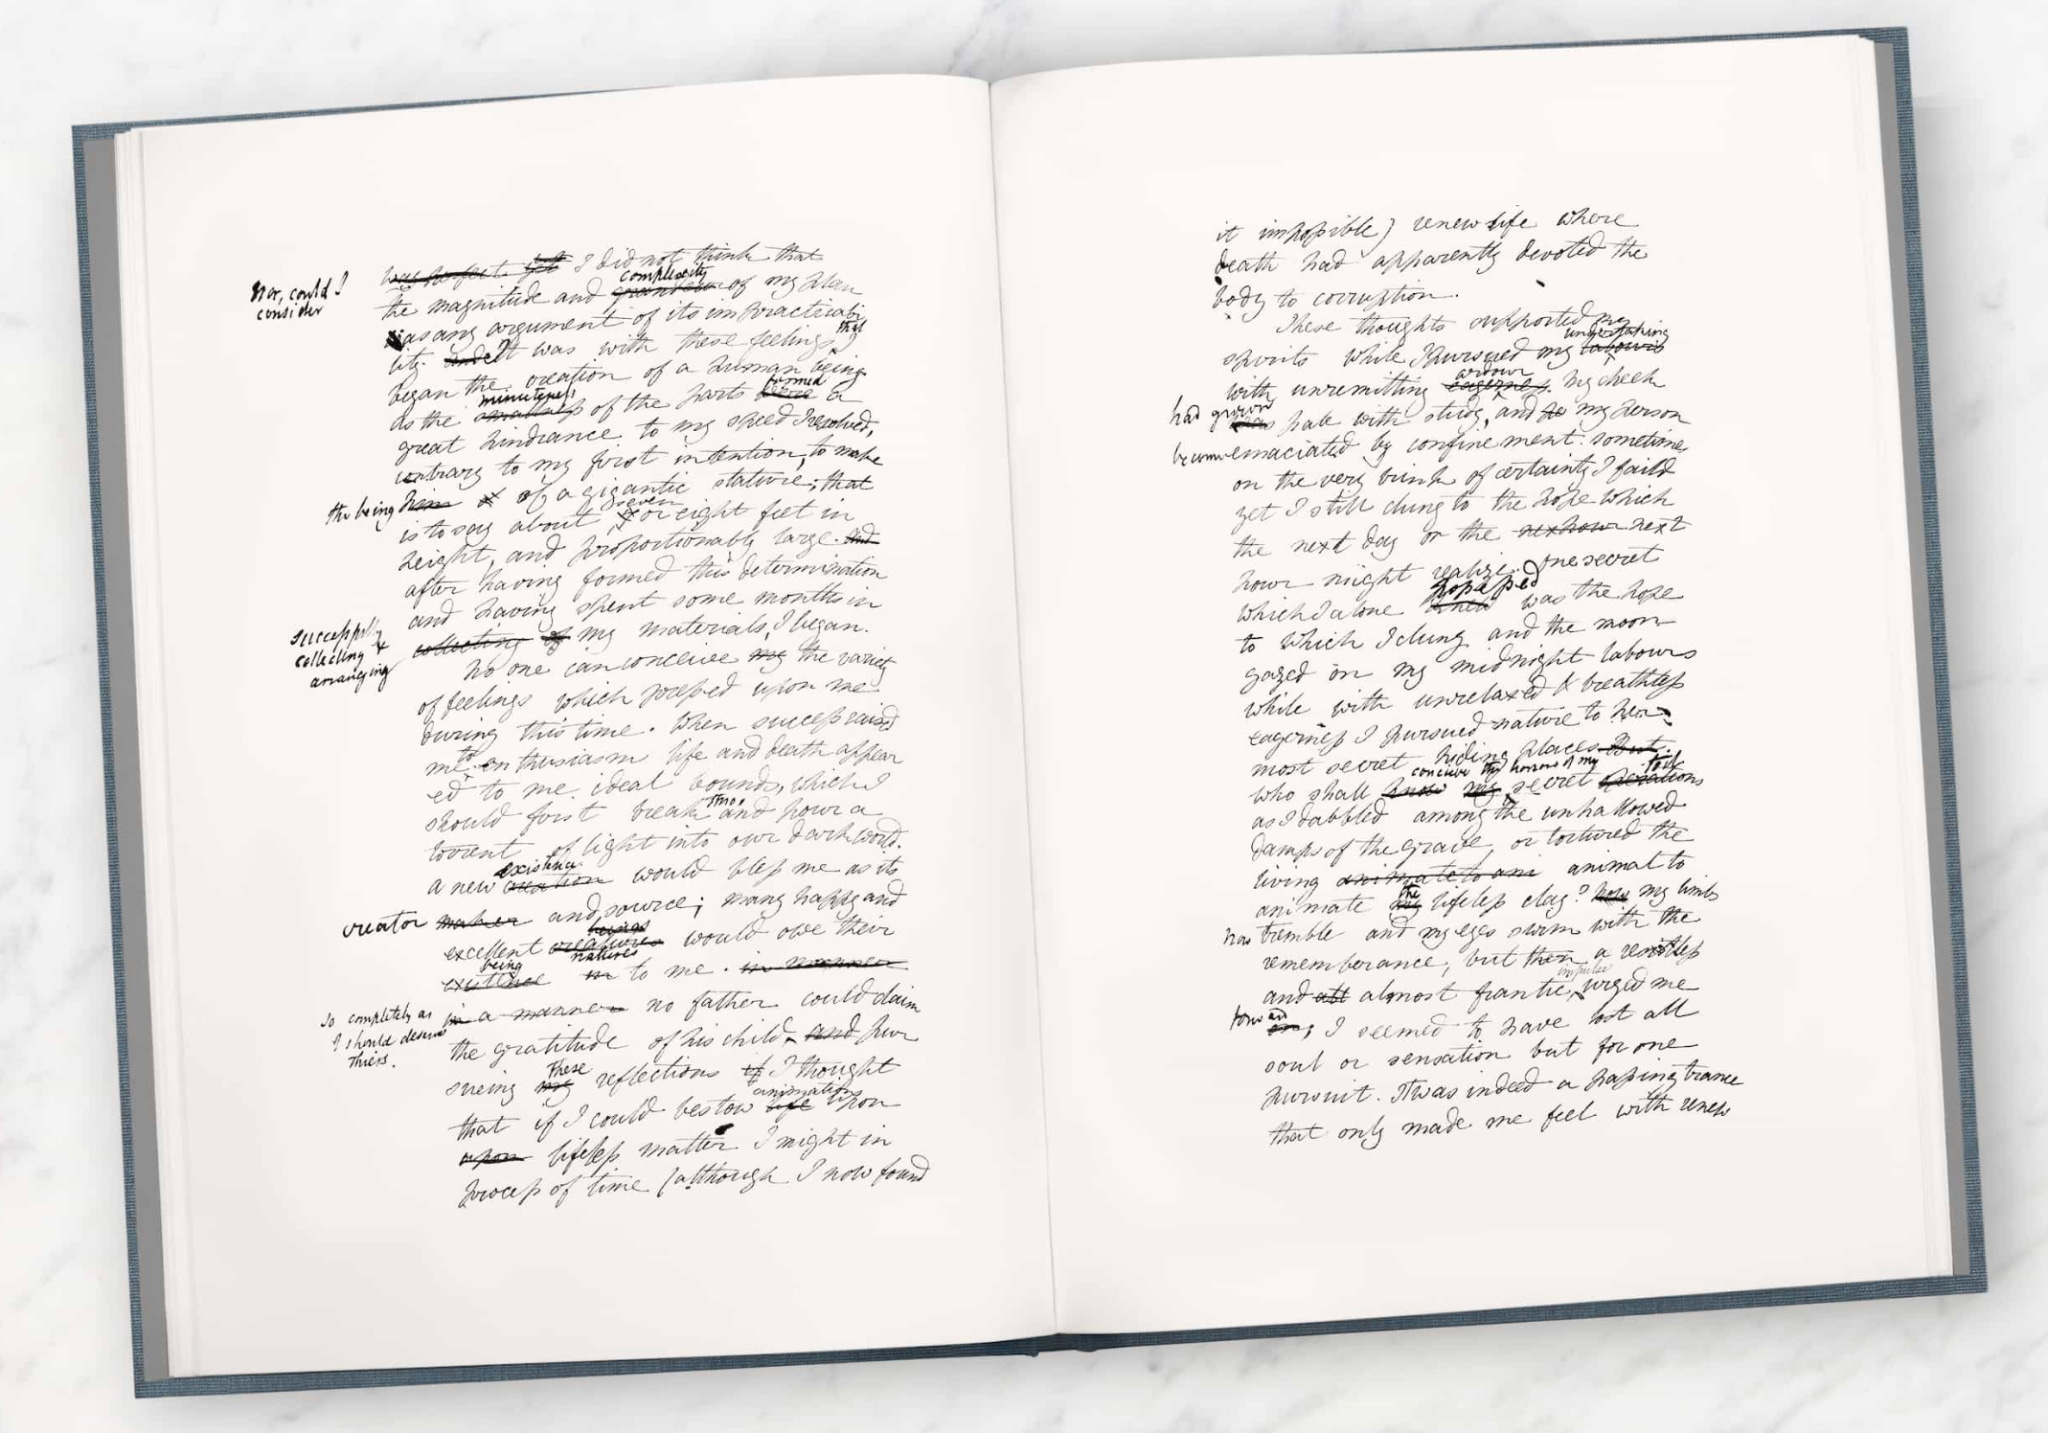 was perfect yet but I did not think that
Nor, could I
consider
the magnitude and grandeur complexity of my plan
as any argument of its impracticabi
lity and It was with these feelings that I
began the creation of a human being.
as the smallness minuteness of the parts were formed a
great hindrance to my speed I resolved,
contrary to my first intention, to make
the being him of a gigantic stature; that
is to say about seven or eight feet in
height, and proportionably large. and
after having formed this determination
and having spent some months in
successfully
collecting &
arranging
collecting of my materials, I began.
No one can conceive my the variety
of feelings which pressed upon me
during this time. When success raised
me to enthusiasm life and death appear
ed to me ideal bounds, which I
should first break thro' and pour a
torrent of light into our dark world.
a new creation existence would bless me as its
creator maker and source; many happy and
excellent creatures beings natures would owe their
existence being to me. in manner
so completely as
I should deserve
theirs.
in a manner no father could claim
the gratitude of his child, and pur
sueing my These reflections if I thought
that if I could bestow life animation upon
upon lifeless matter I might in
process of time (although I now found
it impossible) renew life where
death had apparently devoted the
body to corruption.
These thoughts supported my
spirits while I pursued my labours undertaking
with unremitting eagerness ardour. My cheek
had grown was pale with study, and my person
become emaciated by confinement. sometimes
on the very brink of certainty I faild
yet I still clung to the hope which
the next day or the nexhour next
hour might realize. One secret
which I alone possessed was the hope
to which I clung and the moon
gazed on my midnight labours
while with unrelaxed & breathless
eagerness I pursued nature to her
most secret hiding places But.
who shall know conceive the horrors of my my secret operations toil
as I dabbled among the unhallowed
damps of the grave, or tortured the
living animate to ani animal to
animate the lifeless clay? now my limbs
tremble and my eyes swim with the
rememberance, but then a resistless
and all almost frantic, impulse urged me
forward on; I seemed to have lost all
soul or sensation but for one
pursuit. It was indeed a passing trance
that only made me feel with renew